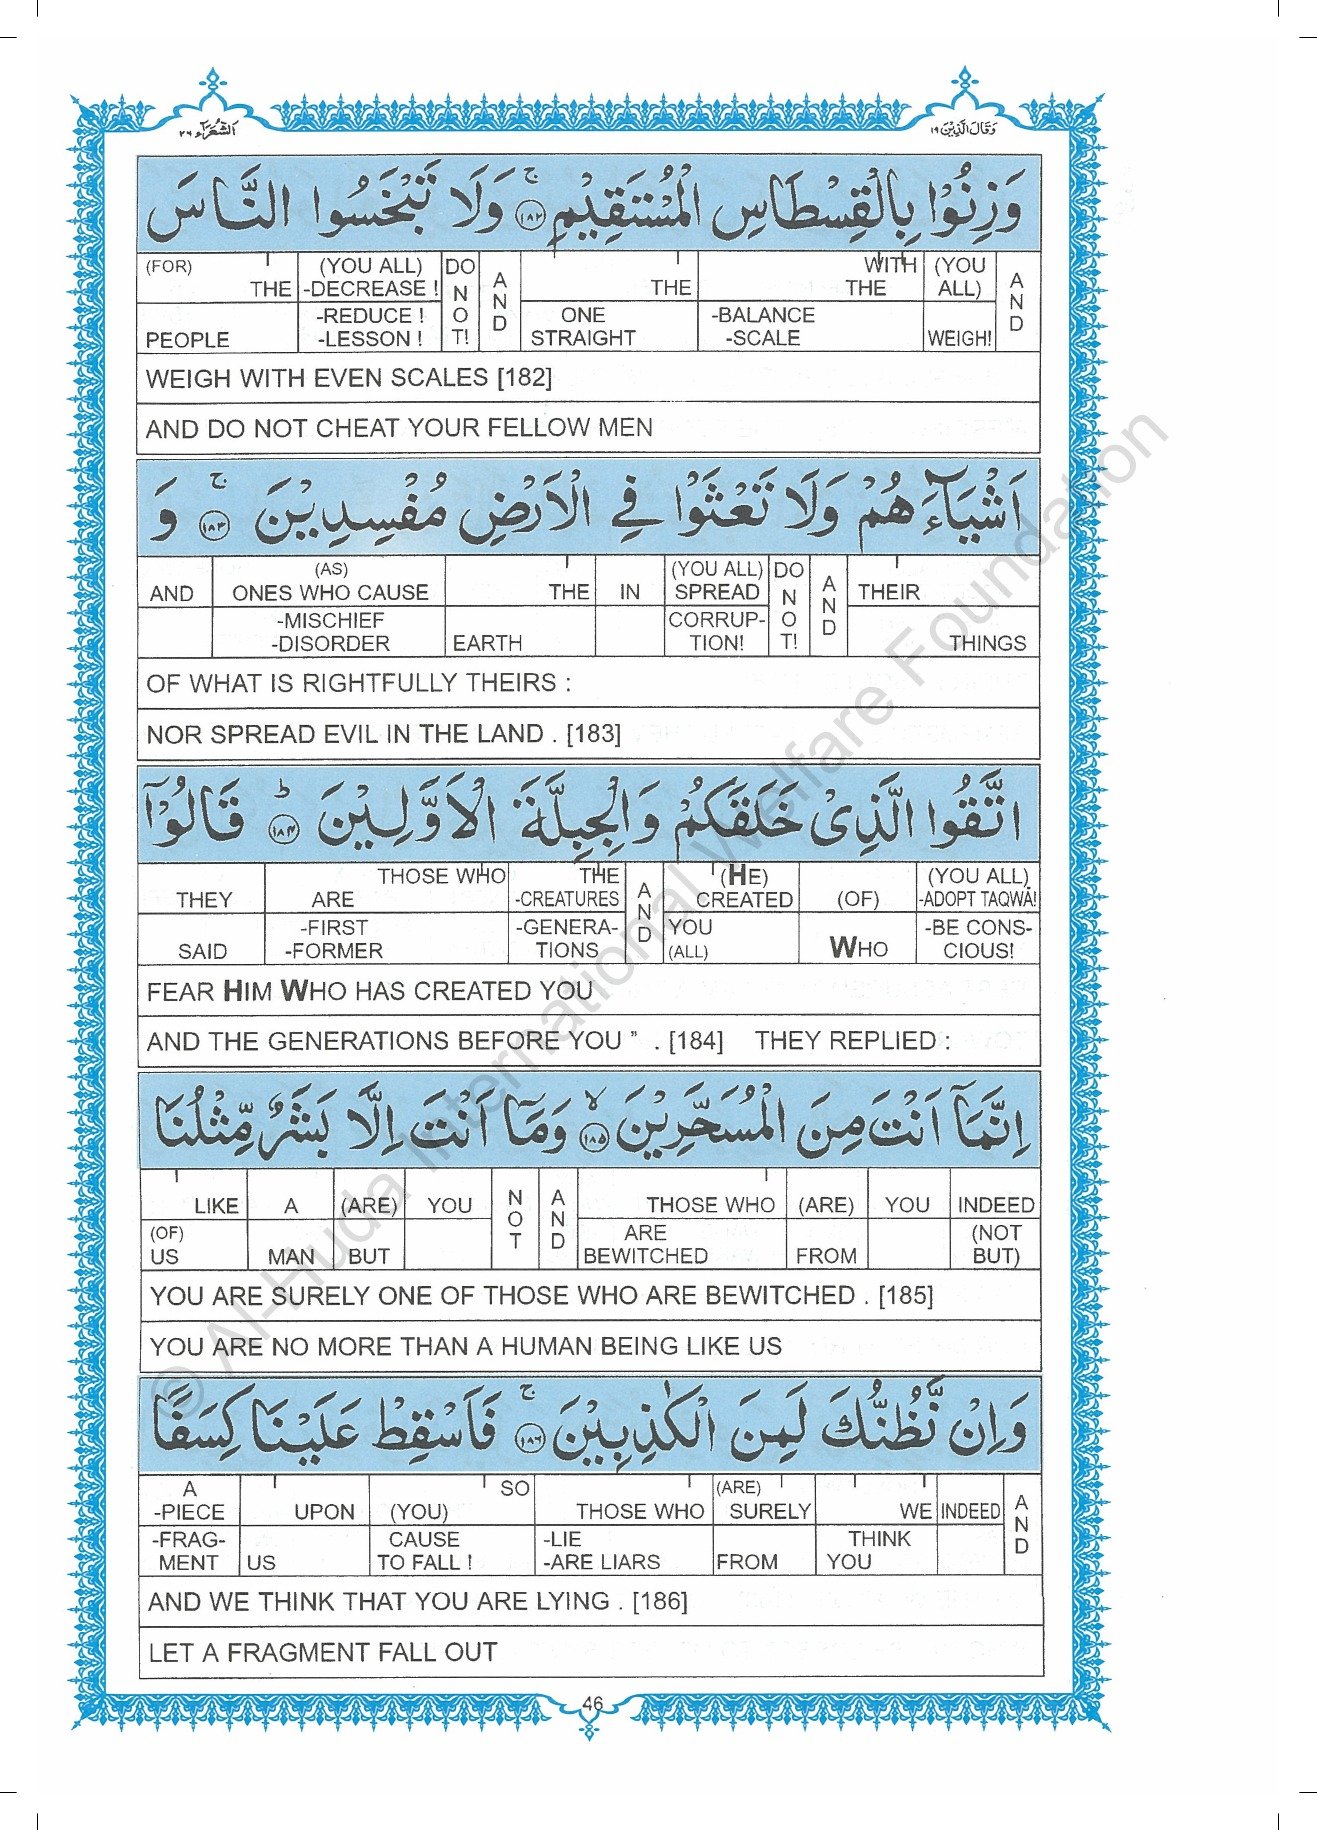 اَلشُّعَرَآء ٢٦
وَقَالَ الَّذِيْنَ ١٩
وَزِنُوْا بِالْقِسْطَاسِ الْمُسْتَقِيْمِ ۚ ١٨٢ وَلَا تَبْخَسُوا النَّاسَ
(FOR) THE (YOU ALL) -DECREASE ! DO NOT! AND THE WITH THE (YOU ALL) AND
PEOPLE -REDUCE ! -LESSON ! ONE STRAIGHT -BALANCE -SCALE WEIGH!
WEIGH WITH EVEN SCALES [182]
AND DO NOT CHEAT YOUR FELLOW MEN
اَشْيَآءَهُمْ وَلَا تَعْثَوْا فِي الْاَرْضِ مُفْسِدِيْنَ ۚ ١٨٣ وَ
AND (AS) ONES WHO CAUSE THE IN (YOU ALL) SPREAD DO NOT! AND THEIR
-MISCHIEF -DISORDER EARTH CORRUP- TION! THINGS
OF WHAT IS RIGHTFULLY THEIRS :
NOR SPREAD EVIL IN THE LAND . [183]
اتَّقُوا الَّذِيْ خَلَقَكُمْ وَالْجِبِلَّةَ الْاَوَّلِيْنَ ؕ ١٨٤ قَالُوْٓا
THEY THOSE WHO ARE THE -CREATURES AND (HE) CREATED (OF) (YOU ALL) -ADOPT TAQWĀ!
SAID -FIRST -FORMER -GENERA- TIONS YOU (ALL) WHO -BE CONS- CIOUS!
FEAR HIM WHO HAS CREATED YOU
AND THE GENERATIONS BEFORE YOU ” . [184] THEY REPLIED :
اِنَّمَآ اَنْتَ مِنَ الْمُسَحَّرِيْنَ ۙ ١٨٥ وَمَآ اَنْتَ اِلَّا بَشَرٌ مِّثْلُنَا
LIKE A (ARE) YOU NOT AND THOSE WHO (ARE) YOU INDEED
(OF) US MAN BUT ARE BEWITCHED FROM (NOT BUT)
YOU ARE SURELY ONE OF THOSE WHO ARE BEWITCHED . [185]
YOU ARE NO MORE THAN A HUMAN BEING LIKE US
وَاِنْ نَّظُنُّكَ لَمِنَ الْكٰذِبِيْنَ ۚ ١٨٦ فَاَسْقِطْ عَلَيْنَا كِسَفًا
A -PIECE UPON (YOU) SO THOSE WHO (ARE) SURELY WE INDEED AND
-FRAG- MENT US CAUSE TO FALL ! -LIE -ARE LIARS FROM THINK YOU
AND WE THINK THAT YOU ARE LYING . [186]
LET A FRAGMENT FALL OUT
46
© Al-Huda International Welfare Foundation